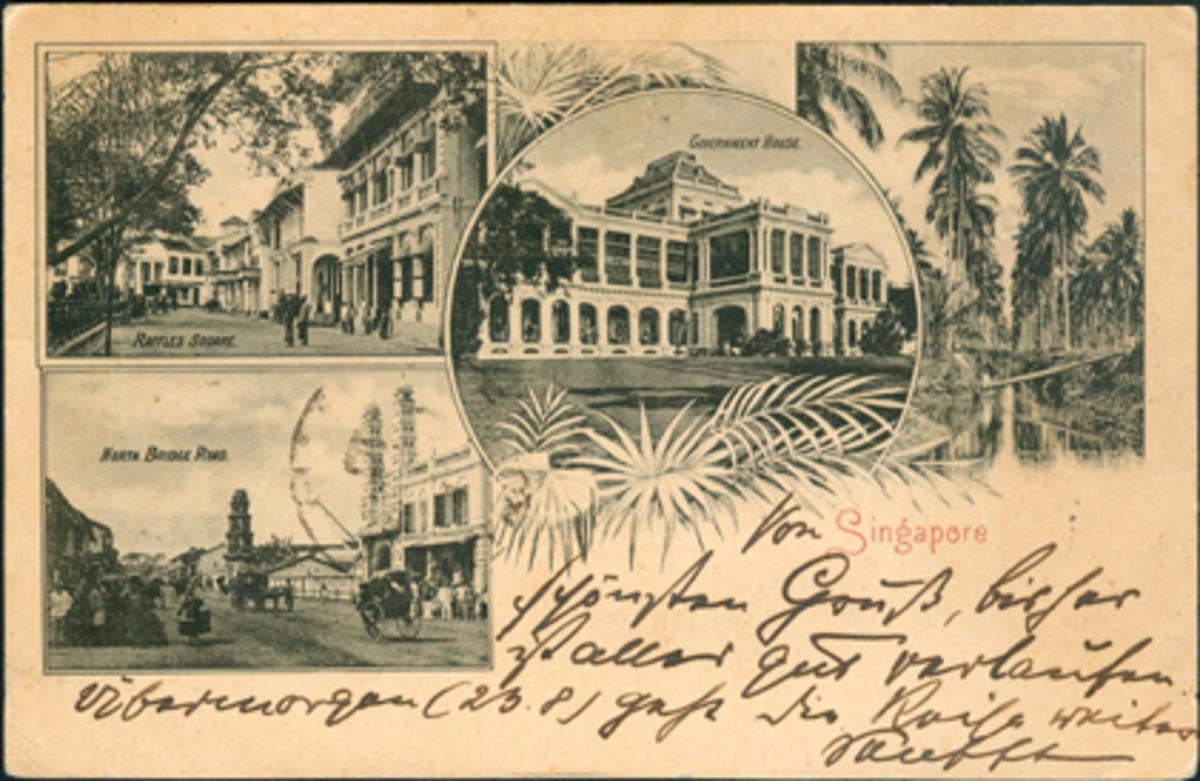 RAFFLES SQUARE.
GOVERNMENT HOUSE.
NORTH BRIDGE ROAD.
Von Singapore
schönsten Gruß, bisher
ist alles gut verlaufen.
Übermorgen (23.8) geht die Reise weiter